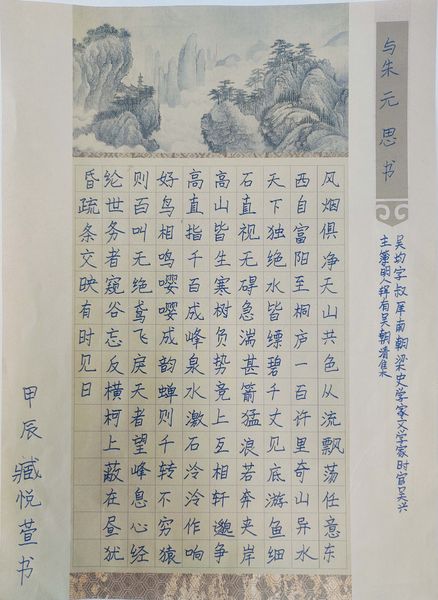 与朱元思书
吴均字叔庠南朝梁史学家文学家时官吴兴
主簿明人辑有吴朝请集
风烟俱净天山共色从流飘荡任意东
西自富阳至桐庐一百许里奇山异水
天下独绝水皆缥碧千丈见底游鱼细
石直视无碍急湍甚箭猛浪若奔夹岸
高山皆生寒树负势竞上互相轩邈争
高直指千百成峰泉水激石泠泠作响
好鸟相鸣嘤嘤成韵蝉则千转不穷猿
则百叫无绝鸢飞戾天者望峰息心经
纶世务者窥谷忘反横柯上蔽在昼犹
昏疏条交映有时见日
甲辰臧悦萱书